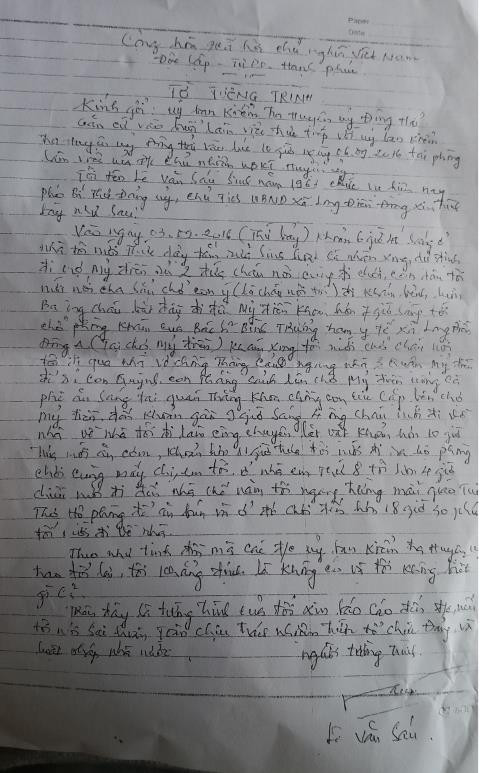 Paper
Date
Cộng hòa xã hội chủ nghĩa Việt Nam
Độc lập - Tự Do - Hạnh phúc
TỜ TƯỜNG TRÌNH
Kính gởi: Uỷ ban Kiểm Tra Huyện uỷ Đông Hải
Căn cứ vào buổi làm việc trực tiếp với uỷ ban kiểm
tra Huyện uỷ Đông Hải vào lúc 10 giờ ngày 06.09.2016 tại phòng
làm việc của đ/c chủ nhiệm UBKT Huyện uỷ
Tôi tên Lê Văn Sáu sinh năm 1961 chức vụ hiện nay
phó Bí Thư Đảng uỷ, chủ tịch UBND xã Long Điền Đông xin tường
trình như sau:
Vào ngày 03.09.2016 (Thứ bảy) khoản 6 giờ sáng ở
nhà tôi mới thức dậy tắm rửa sinh hoạt cá nhân xong, dự định
đi chợ Mỹ Điền và 2 đứa cháu nội cùng đi chơi, con dân tôi
mới nói cha sẵn chở con ý (là cháu nội tôi) đi khám bệnh, luôn
Ba ông cháu bắt đầy đi đến Mỹ Điền khoản hơn 7 giờ sáng tới
chổ phòng khám của Bác sĩ Bình Trưởng trạm y tế xã Long Điền
Đông A (Tại chợ Mỹ Điền) khám xong tôi mới chở cháu nội
tôi đi qua nhà vợ chồng Thằng Cảnh ngang nhà 3 Quân Mỹ Điền
đi con Quỳnh con Thằng Cảnh lên chợ Mỹ Điền uống cà
phê ăn sáng tại quán Thằng Khoa chồng con của Cấp bên chợ
Mỹ Điền, đến khoản gần 9 giờ sáng 4 ông cháu mới đi về
nhà về nhà tôi đi làm công chuyện lặt vặt khoản hơn 10 giờ
mới ăn cơm, khoản hơn 11 giờ trưa tôi mới đi ra hộ phòng
chơi cùng mấy chị, em tôi ở nhà em thứ 8 tôi hơn 4 giờ
chiều mới đi đến nhà chế năm tôi ngang trường mẫu giáo Tuổi
Thơ Hộ phòng để ăn bún và ở đó chơi đến hơn 18 giờ 30 phút
tối mới đi về nhà.
Theo như tình đơn mà các đ/c uỷ ban kiểm tra Huyện uỷ
trao đổi lại, tôi khẳng định là không có và tôi không biết
gì cả.
Trên đây là tường trình của tôi xin báo cáo đến đ/c, nếu
tôi nói sai hoàn toàn chịu trách nhiệm trước tổ chức Đảng và
luật pháp nhà nước
người tường trình.
Lê Văn Sáu.